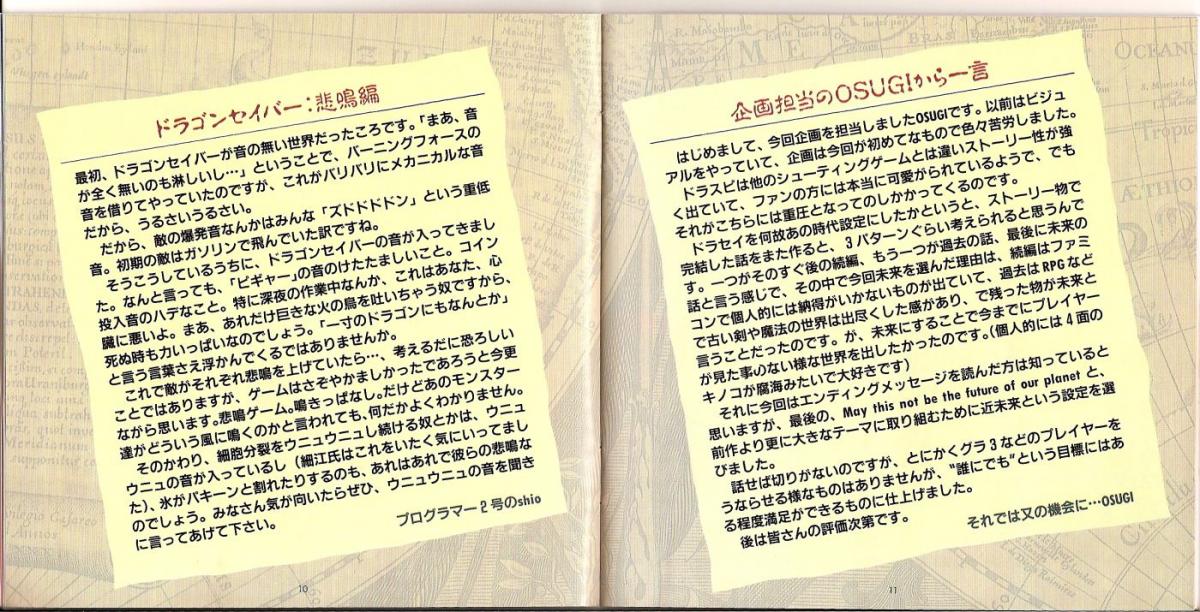 ドラゴンセイバー：悲鳴編
最初、ドラゴンセイバーが音の無い世界だったころです。「まあ、音
が全く無いのも淋しいし…」ということで、バーニングフォースの
音を借りてやっていたのですが、これがバリバリにメカニカルな音
だから、うるさいうるさい。
だから、敵の爆発音なんかはみんな「ズドドドドン」という重低
音。初期の敵はガソリンで飛んでいた訳ですね。
そうこうしているうちに、ドラゴンセイバーの音が入ってきまし
た。なんと言っても、「ピギャー」の音のけたたましいこと。コイン
投入音のハデなこと。特に深夜の作業中なんか、これはあなた、心
臓に悪いよ。まあ、あれだけ巨きな火の鳥を吐いちゃう奴ですから、
死ぬ時も力いっぱいなのでしょう。「一寸のドラゴンにもなんとか」
と言う言葉さえ浮かんでくるではありませんか。
これで敵がそれぞれ悲鳴を上げていたら…、考えるだに恐ろしい
ことではありますが、ゲームはさぞやかましかったであろうと今更
ながら思います。悲鳴ゲーム。鳴きっぱなし。だけどあのモンスター
達がどういう風に鳴くのかと言われても、何だかよくわかりません。
そのかわり、細胞分裂をウニュウニュし続ける奴とかは、ウニュ
ウニュの音が入っているし（細江氏はこれをいたく気にいってまし
た）、氷がバキーンと割れたりするのも、あれはあれで彼らの悲鳴な
のでしょう。みなさん気が向いたらぜひ、ウニュウニュの音を聞き
に言ってあげて下さい。
プログラマー2号のshio
10
企画担当のOSUGIから一言
はじめまして、今回企画を担当しましたOSUGIです。以前はビジュ
アルをやっていて、企画は今回が初めてなもので色々苦労しました。
ドラスピは他のシューティングゲームとは違いストーリー性が強
く出ていて、ファンの方には本当に可愛がられているようで、でも
それがこちらには重圧となってのしかかってくるのです。
ドラセイを何故あの時代設定にしたかというと、ストーリー物で
完結した話をまた作ると、3パターンぐらい考えられると思うんで
す。一つがそのすぐ後の続編、もう一つが過去の話、最後に未来の
話と言う感じで、その中で今回未来を選んだ理由は、続編はファミ
コンで個人的には納得がいかないものが出ていて、過去はRPGなど
で古い剣や魔法の世界は出尽くした感があり、で残った物が未来と
言うことだったのです。が、未来にすることで今までにプレイヤー
が見た事のない様な世界を出したかったのです。（個人的には4面の
キノコが腐海みたいで大好きです）
それに今回はエンディングメッセージを読んだ方は知っていると
思いますが、最後の、May this not be the future of our planet と、
前作より更に大きなテーマに取り組むために近未来という設定を選
びました。
話せば切りがないのですが、とにかくグラ3などのプレイヤーを
うならせる様なものはありませんが、“誰にでも”という目標にはあ
る程度満足ができるものに仕上げました。
後は皆さんの評価次第です。
それでは又の機会に…OSUGI
11